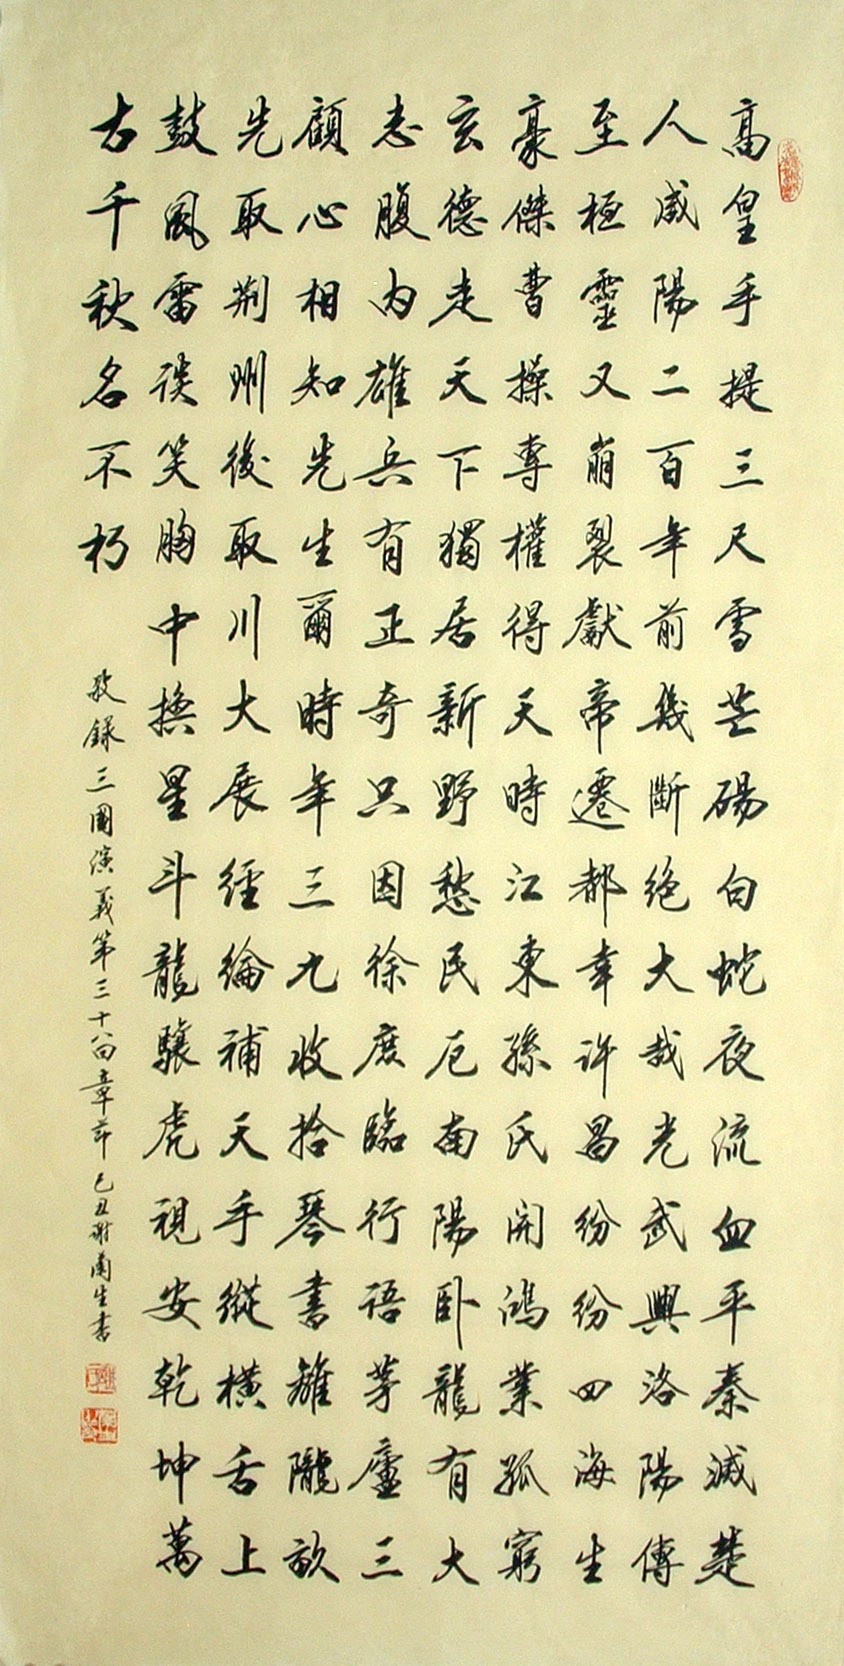 高皇手提三尺雪芒碭白蛇夜流血平秦滅楚
入咸陽二百年前幾斷絶大哉光武興洛陽傳
至桓靈又崩裂獻帝遷都幸許昌紛紛四海生
豪傑曹操專權得天時江東孫氏開鴻業孤窮
玄德走天下獨居新野愁民厄南陽卧龍有大
志腹内雄兵有正奇只因徐庶臨行語茅廬三
顧心相知先生爾時年三九收拾琴書離隴畝
先取荊州後取川大展經綸補天手縱橫舌上
鼓風雷談笑胸中換星斗龍驤虎視安乾坤萬
古千秋名不朽
敬録三國演義第三十八回章節己丑謝蘭生書